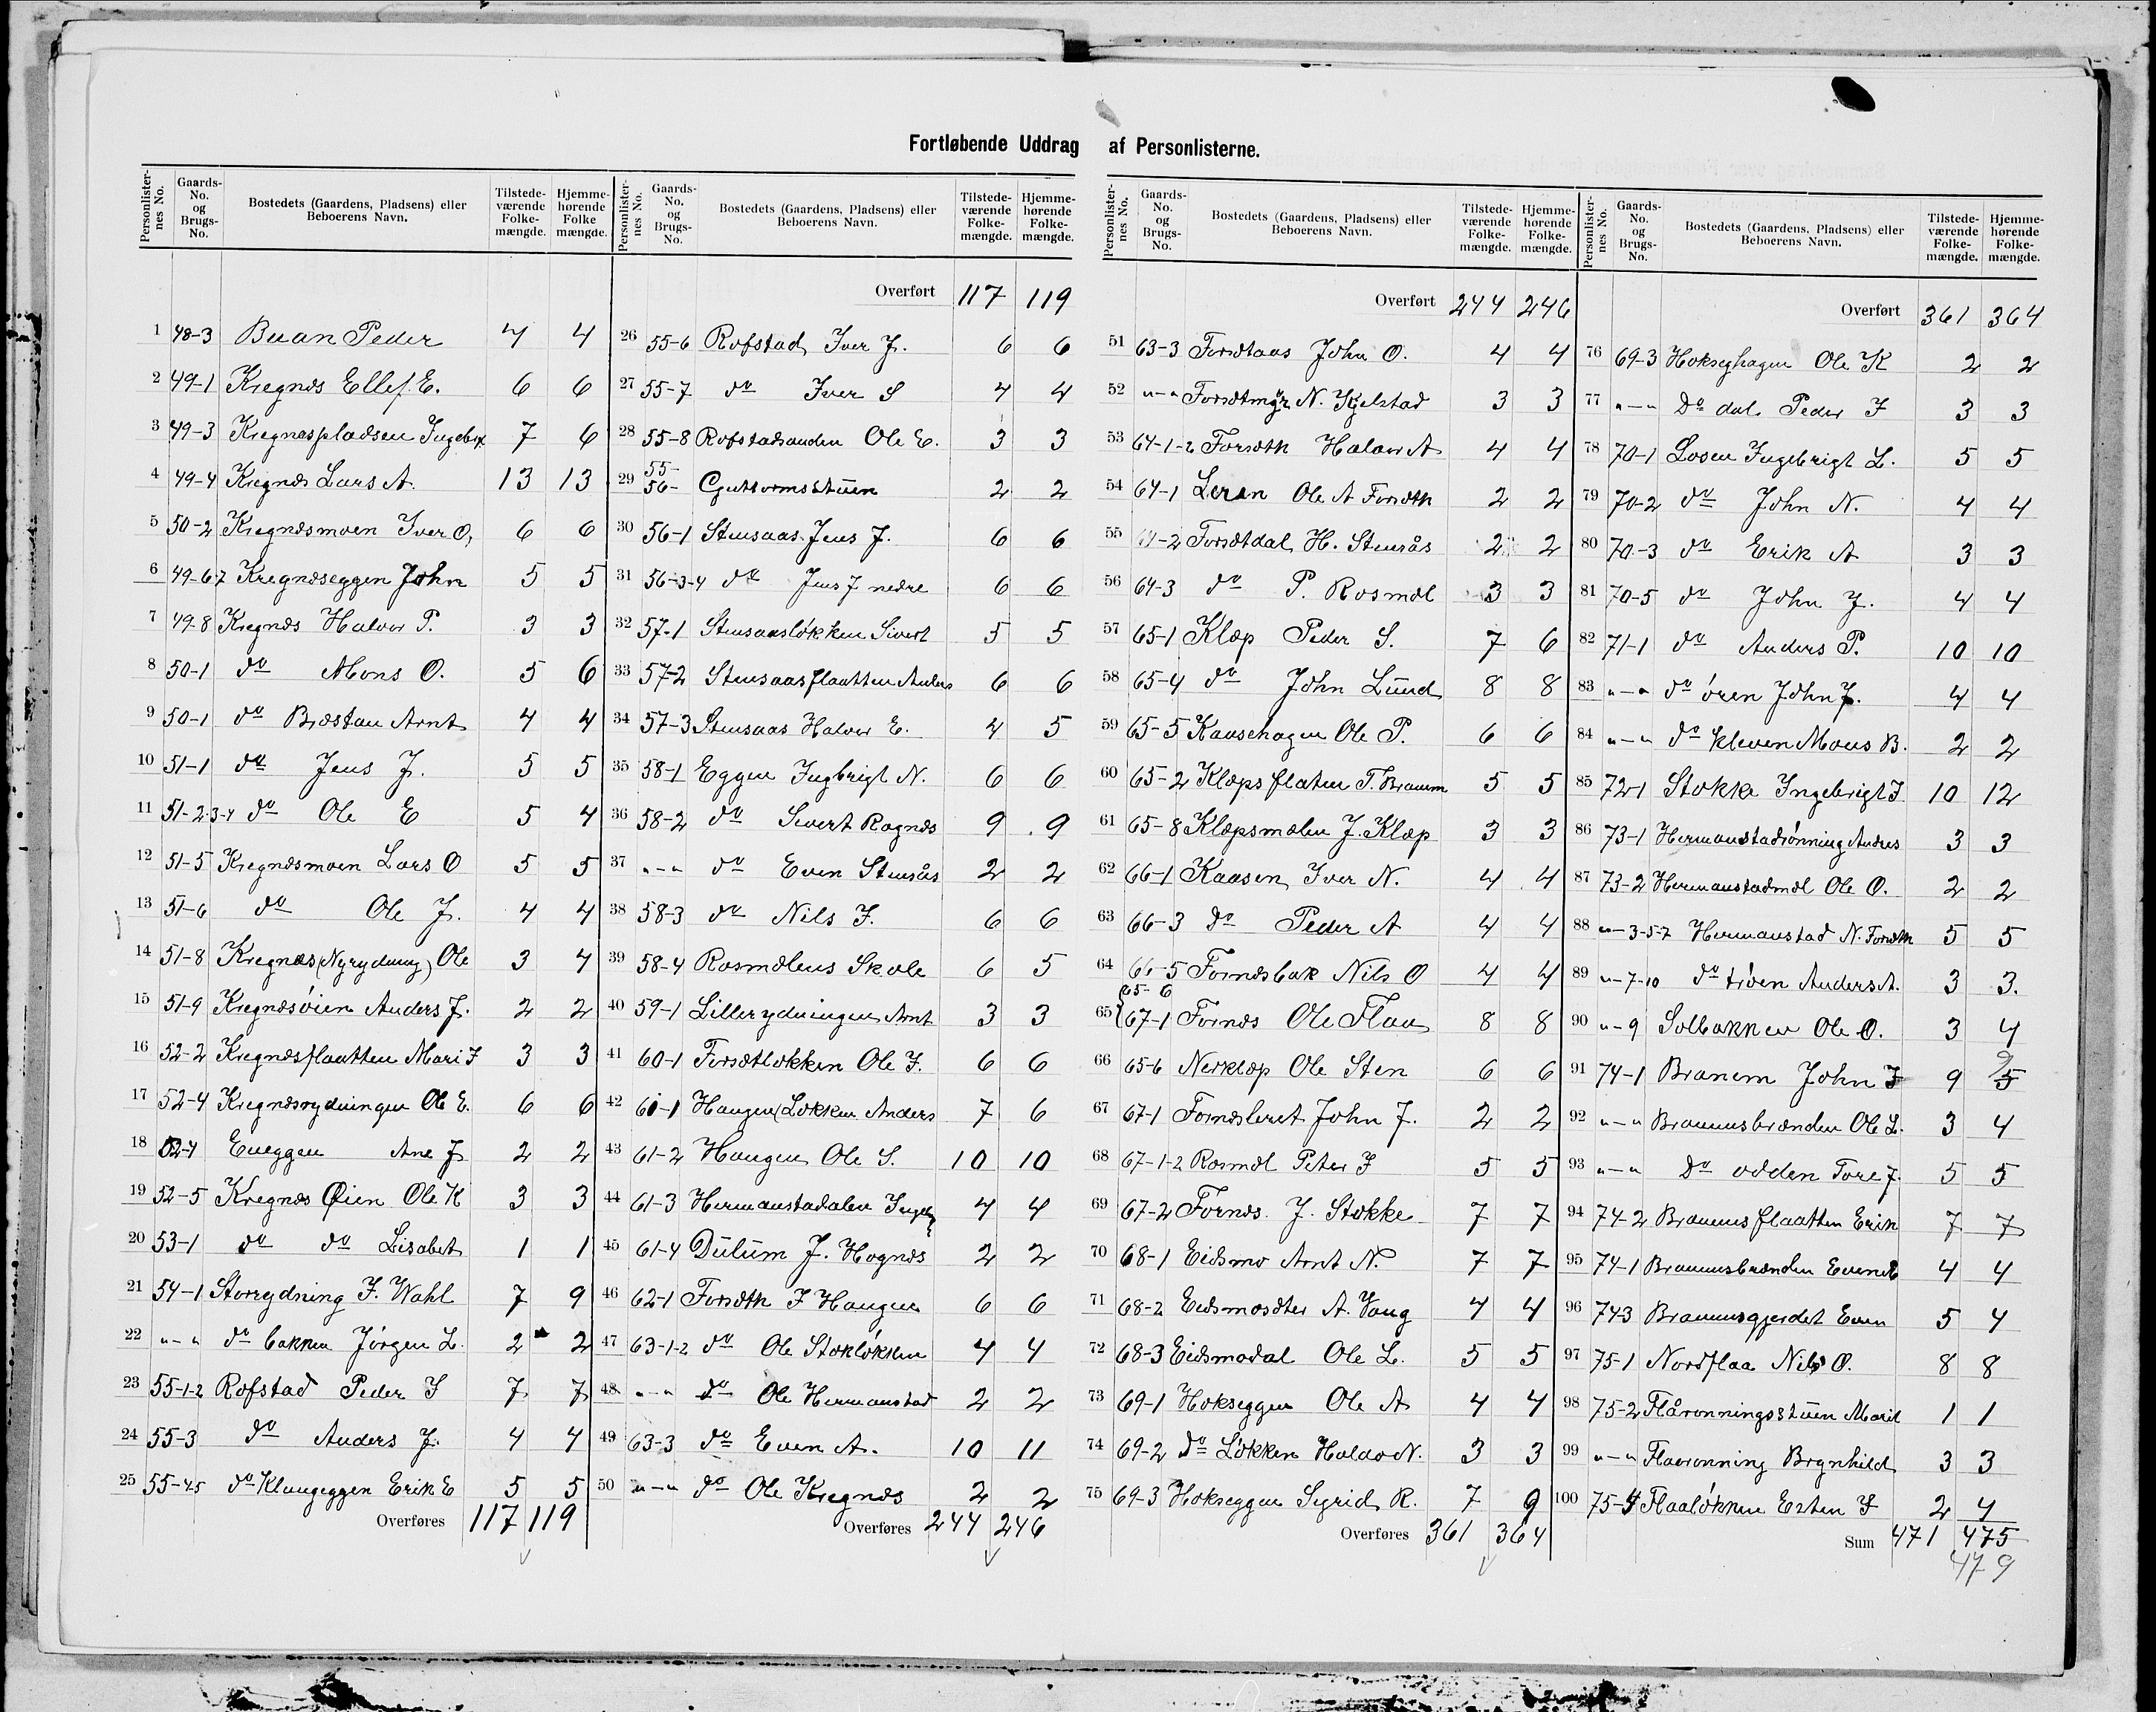 Fortløbende Uddrag af Personlisterne.
Personlister-nes No. Gaards-No. og Brugs-No. Bostedets (Gaardens, Pladsens) eller Beboerens Navn. Tilstede-værende Folke-mængde. Hjemme-hørende Folke mængde.
1 48-3 Buan Peder 4 4
2 49-1 Kregnæs Ellef E. 6 6
3 49-3 Kregnæspladsen Ingebr 7 6
4 49-4 Kregnæs Lars A. 13 13
5 50-2 Kregnæsmoen Iver O, 6 6
6 49-6-7 Kregnæseggen John 5 5
7 49-8 Kregnæs Halvor P. 3 3
8 50-1 do Mons O. 5 6
9 50-1 do Bræstau Arnt 4 4
10 51-1 do Jens J. 5 5
11 51-2-3-4 do Ole E 5 4
12 51-5 Kregnæsmoen Lars O 5 5
13 51-6 do Ole J. 4 4
14 51-8 Kregnæs (Nyrydning) Ole 3 4
15 51-9 Kregnæsöien Anders J. 2 2
16 52-2 Kregnæsflaatten Mari J 3 3
17 52-4 Kregnæsrydningen Ole E. 6 6
18 52-4 Eneggen Ane J 2 2
19 52-5 Kregnæs Øien Ole K 3 3
20 53-1 do do Lisabet 1 1
21 54-1 Storrydning J. Wahl 7 9
22 "-" do bakken Jörgen L. 2 2
23 55-1-2 Rofstad Peder J 7 7
24 55-3 do Anders J. 4 4
25 55-4-5 do Klungeggen Erik E 5 5
Overføres 117 119
Personlister-nes No. Gaards-No. og Brugs-No. Bostedets (Gaardens, Pladsens) eller Beboerens Navn. Tilstede-værende Folke-mængde. Hjemme-hørende Folke-mængde.
Overført 117 119
26 55-6 Rofstad Iver J. 6 6
27 55-7 do Iver S 4 4
28 55-8 Rofstadsanden Ole E. 3 3
29 55- 56- Guttormsstuen 2 2
30 56-1 Stensaas Jens J. 6 6
31 56-3-4 do Jens J nedre 6 6
32 57-1 Stensaasløkken Sivert 5 5
33 57-2 Stensaasflaatten Anders 6 6
34 57-3 Stensaas Halvor E. 4 5
35 58-1 Eggen Ingbrigt N. 6 6
36 58-2 do Sivert Rognæs 9 9
37 "-" do Even Stensås 2 2
38 58-3 do Nils J. 6 6
39 58-4 Rosmælens Skole 6 5
40 59-1 Lillerydningen Arnt 3 3
41 60-1 Forsætløkken Ole J. 6 6
42 61-1 Haugen (Løkken Anders 7 6
43 61-2 Haugen Ole S. 10 10
44 61-3 Hermanstadalen Ingebr 4 4
45 61-4 Dulum J. Hognæs 2 2
46 62-1 Forsæth J Haugen 6 6
47 63-1-2 do Ole Stokløkken 4 4
48 "-" do Ole Hermanstad 2 2
49 63-3 do Even A. 10 11
50 "-" do Ole Kregnæs 2 2
Overføres 244 246
Personlister-nes No. Gaards-No. og Brugs-No. Bostedets (Gaardens, Pladsens) eller Beboerens Navn. Tilstede-værende Folke-mængde. Hjemme-hørende Folke-mængde.
Overført 244 246
51 63-3 Forsætaas John O. 4 4
52 "-" Forsætmyr N. Kjelstad 3 3
53 64-1-2 Forsæth Halvor A 4 4
54 64-1 Leran Ole A Forsæth 2 2
55 64-2 Forsætdal H. Stensås 2 2
56 64-3 do P. Rosmæl 3 3
57 65-1 Klæp Peder S. 7 6
58 65-4 do John Lund 8 8
59 65-5 Kausehagen Ole P. 6 6
60 65-2 Klæpsflaten T. Branem 5 5
61 65-8 Klæpsmælen J. Klæp 3 3
62 66-1 Kaasen Iver N. 4 4
63 66-3 do Peder A 4 4
64 66-5 Fornæsbak Nils O 4 4
65 {65-6 67-1 Fornæs Ole Flaa 8 8
66 65-6 Nerklæp Ole Sten 6 6
67 67-1 Fornæsleret John J. 2 2
68 67-1-2 Rosmæl Peter J 5 5
69 67-2 Fornæs. J. Stokke 7 7
70 68-1 Eidsmo Arnt N. 7 7
71 68-2 Eidsmosæter A. Vang 4 4
72 68-3 Eidsmodal Ole L. 5 5
73 69-1 Hokseggen Ole A 4 4
74 69-2 do Løkken Haldo N. 3 3
75 69-3 Hokseggen Sigrid R. 7 9
Overføres 361 364
Personlister-nes No. Gaards-No. og Brugs-No. Bostedets (Gaardens, Pladsens) eller Beboerens Navn. Tilstede-værende Folke-mængde. Hjemme-hørende Folke-mængde.
Overført 361 364
76 69-3 Hokseghagen Ole K 2 2
77 "-" Do dal Peder J 3 3
78 70-1 Losen Ingebrigt L. 5 5
79 70-2 do John N. 4 4
80 70-3 do Erik A 3 3
81 70-5 do John J. 4 4
82 71-1 do Anders P. 10 10
83 "-" do ören John J. 4 4
84 "-" do kleven Mons B. 2 2
85 72-1 Stokke Ingebrigt J 10 12
86 73-1 Hermanstadrønning Anders 3 3
87 73-2 Hermanstadmæl Ole O. 2 2
88 "-3-5-7 Hermanstad N. Forsæth 5 5
89 "-7-10 do trøen Anders A. 3 3.
90 "-9 Solbakken Ole O. 3 4
91 74-1 Branem John J 9 5 9
92 "-" Branemsbrænden Ole L. 3 4
93 "-" Do odden Tore J. 5 5
94 74-2 Branemsflaatten Erik 7 7
95 74-1 Branemsbrænden Even E 4 4
96 74-3 Branemsgjerdet Even 5 4
97 75-1 Nordflaa Nils O. 8 8
98 75-2 Flåronningsstuen Marit 1 1
99 "-" Flaaronning Brynhild 3 3
100 75-4 Flaaløkken Esten J 2 4
Sum 471 475
479